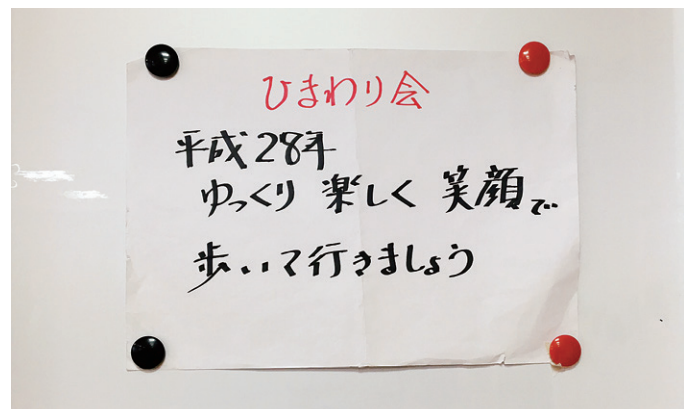 ひまわり会
平成28年
ゆっくり 楽しく 笑顔で
歩いて行きましょう